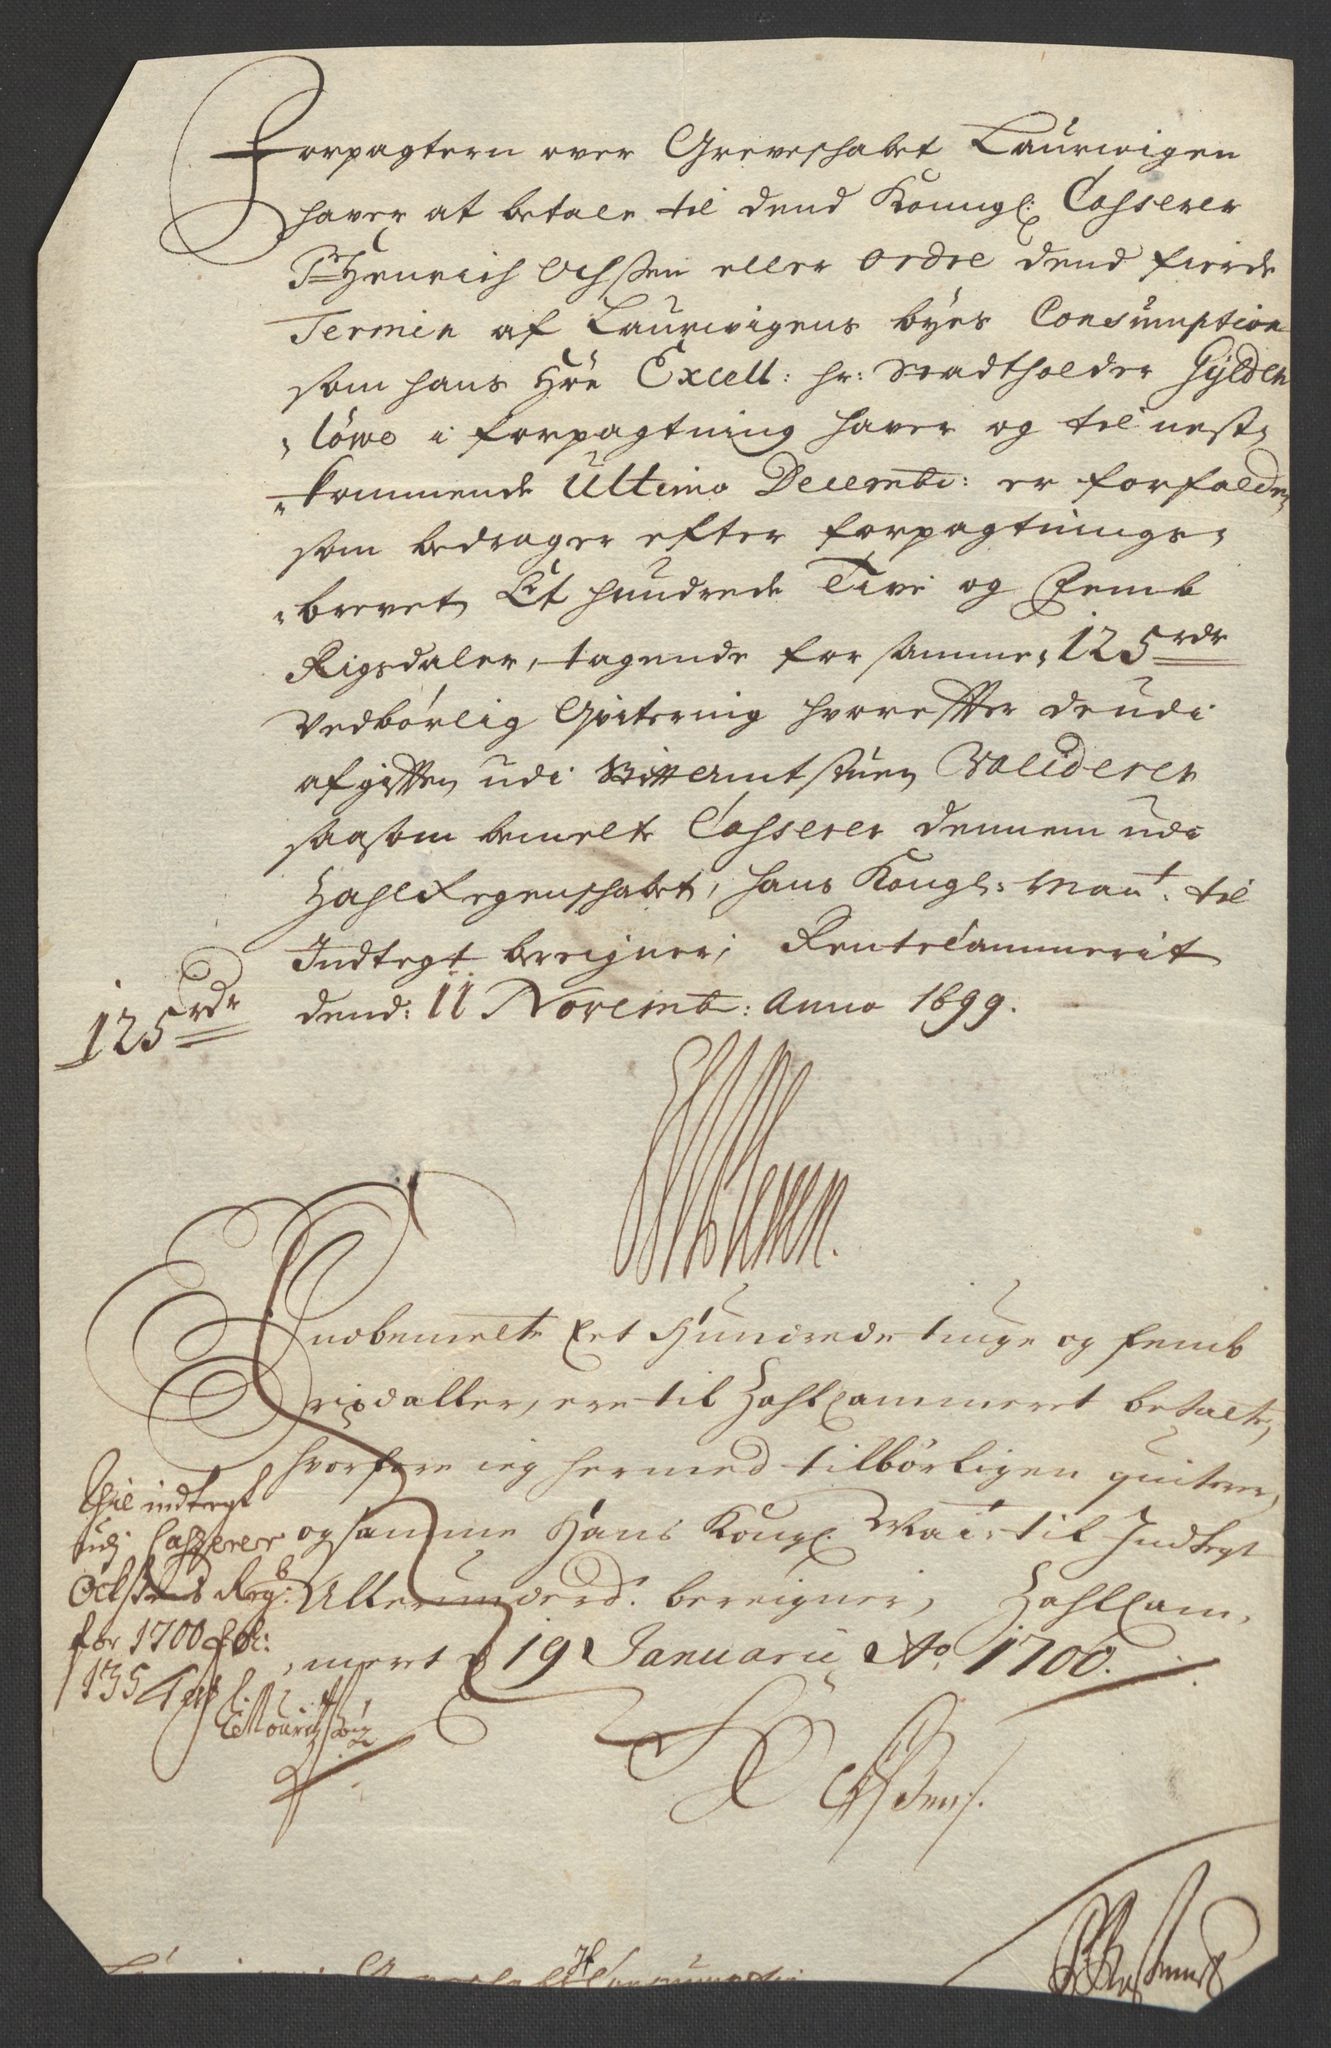 Forpagtern over Grevschabet Laurwigen
haver at betale til dend Kongl: Casserer
Sr Henrich Ochsen eller ordre dend fierde
Termin af Laurwigens byes Consumption
som hans Høe Excell: hr: Stadtholder Gylden
„löwe i forpagtning haver og til nest„
„kommende Ultimo Decembr: er forfalden,
som bedrager efter forpagtnings„
„brevet, Et hundrede Tive og Femb
Rigsdaler, tagende for samme, 125 rdr
Vedbörlig Qvitering hvorefter de udi
afgifften udi Amtstuen Validerer
saasom bemelte Casserer dennem udi
ZahlRegenschabet, hans Kongl: Mayt. til
Indtegt bereigner, Rentecammerit
dend: 11 Novemb: Anno 1699.
125 rdr
Indbemelte Eet Hundrede tiuge og femb
rixdaller, ere til ZahlCammeret betalte,
hvorfore ieg hermed tilbörligen quiterer,
og samme Hans Kongl Mait: til Indtegt
Allerunderd. bereigner, ZahlCam„
„meret d 19 Januarii Ao 1700.
Til indtegt
udj Casserer
Ochsens Regb:
for 1700 fol:
135
E Mouritzsön
H Ochsen